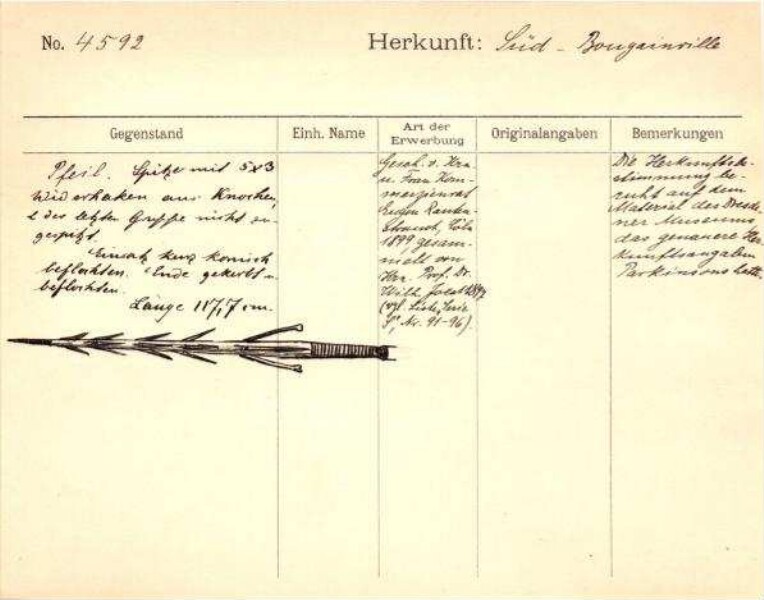 No. 4592
Herkunft: Süd - Bougainville
Gegenstand
Einh. Name
Art der
Erwerbung
Originalangaben
Bemerkungen
Pfeil. Spitze mit 5x3
Widerhaken aus Knochen,
d. des letzten Gruppe nicht zu-
gespitzt.
Einsatz kurz konisch
beflochten. Ende gekerbt u.
beflochten.
Länge 117,7 cm.
Gesch. v. Hrn.
u. Frau Kom-
merzienrat
Eugen Rauten-
strauch, Köln
1899 gesam-
melt von
Hrn. Prof. Dr.
Wilh. Joest 1897
(vgl. Liste, Serie
S, Nr. 91-96).
Die Herkunftsbe-
stimmung be-
ruht auf dem
Material des Dresde-
ner Museums
das genauere Her-
kunftsangaben
Parkinsons hatte.